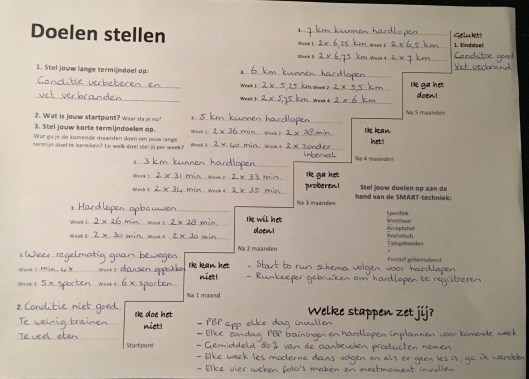 Doelen stellen
1. Stel jouw lange termijndoel op:
Conditie verbeteren en
vet verbranden
2. Wat is jouw startpunt? Waar sta je nu?
3. Stel jouw korte termijndoelen op.
Wat ga je de komende maanden doen om jouw lange
termijn doel te bereiken? En welk doel stel jij per week?
3. 7 km kunnen hardlopen
Week 1: 2 x 6,25 km Week 2: 2 x 6,5 km
Week 3: 2 x 6,75 km Week 4: 2 x 7 km
Gelukt!
1. Einddoel
Conditie goed
Vet verbrand
3. 6 km kunnen hardlopen
Week 1: 2 x 5,25 km Week 2: 2 x 5,5 km
Week 3: 2 x 5,75 km Week 4: 2 x 6 km
Ik ga het
doen!
Na 5 maanden
3. 5 km kunnen hardlopen
Week 1: 2 x 36 min. Week 2: 2 x 38 min.
Week 3: 2 x 40 min. Week 4: 2 x zonder
interval
Ik kan
het!
Na 4 maanden
3. 3 km kunnen hardlopen
Week 1: 2 x 31 min. Week 2: 2 x 33 min.
Week 3: 2 x 34 min. Week 4: 2 x 35 min.
Ik ga het
proberen!
Na 3 maanden
3. Hardlopen opbouwen
Week 1: 2 x 26 min. Week 2: 2 x 28 min.
Week 3: 2 x 30 min. Week 4: 2 x 30 min.
Ik wil het
doen!
Na 2 maanden
3. Weer regelmatig gaan bewegen
Week 1: min. 4x Week 2: dansen oppakken
Week 3: 5x sporten Week 4: 6x sporten
Ik kan het
niet!
Na 1 maand
2. Conditie niet goed
Te weinig trainen
Te veel eten
Ik doe het
niet!
Startpunt
Stel jouw doelen op aan de
hand van de SMART-techniek:
Specifiek
Meetbaar
Acceptabel
Realistisch
Tijdsgebonden
+
Positief geformuleerd
- Start to run schema volgen voor hardlopen
- Runkeeper gebruiken om hardlopen te registreren
Welke stappen zet jij?
- PBP app elke dag invullen
- Elke zondag PBP trainingen en hardlopen inplannen voor komende week
- Gemiddeld 80% van de aanbevolen producten nemen
- Elke week les moderne dans volgen en als er geen les is, ga ik wandelen
- Elke vier weken foto's maken en meetmoment invullen